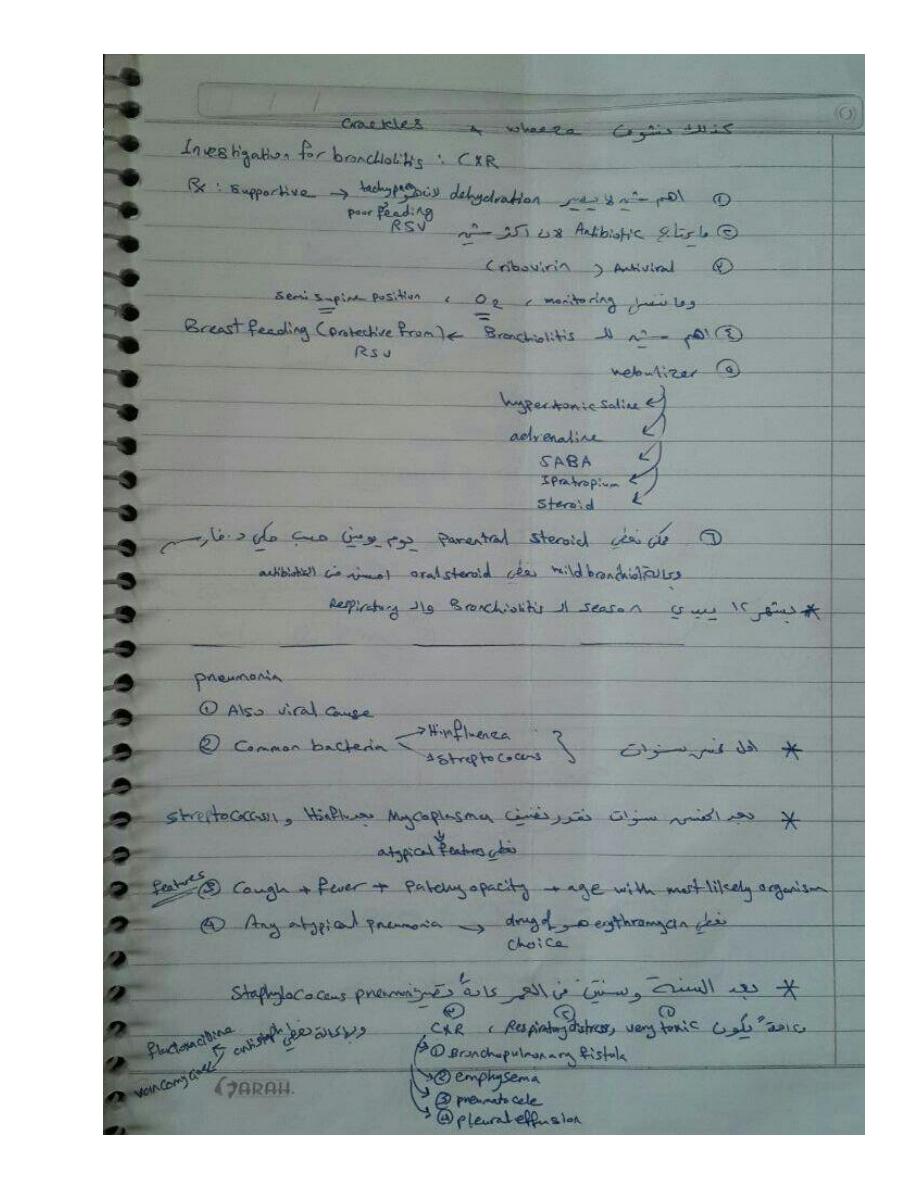 كذلك نشوف wheeze و crackles
Investigation for bronchiolitis : CXR
Rx : supportive → tachypnea dehydration اهم شيء لا يصير ①
poor feeding
RSV
② ما يحتاج Antibiotic لان اكثر شيء
③ Antiviral (ribovirin)
monitoring ، O2 ، semi supine position
④ اهم شيء لل Bronchiolitis ← Breast feeding (protective from)
RSV
⑤ nebulizer
hypertonic saline
adrenaline
SABA
Ipratropium
steroid
⑥ نعطي parentral steroid يوم يومين حسب حكي د. فارس
mild bronchiol نعطي oral steroid احسن من antibiotic
* بشهر ١٢ يبدي season ال Bronchiolitis وال Respiratory
pneumonia
① Also viral cause
② Common bacteria → H influenza
→ streptococcus
* اقل خمس سنوات
* بعد الخمس سنوات نقدر نضيف Mycoplasma بعد H influ و streptococcus
نعطي atypical features
features ③ Cough + fever + Patchy opacity + age with most likely organism
④ Any atypical pneumonia → نعطي erythromycin هو drug of
choice
* بعد السنة وسنتين من العمر عادةً تصير Staphylococcus pneumonia
عادةً يكون very toxic ① ، Respiratory distress ② ، CXR ③
① Bronchopulmonary fistula
② emphysema
③ pneumatocele
④ pleural effusion
نعطي antistaph
flucloxacidine
vancomycin
FARAH.